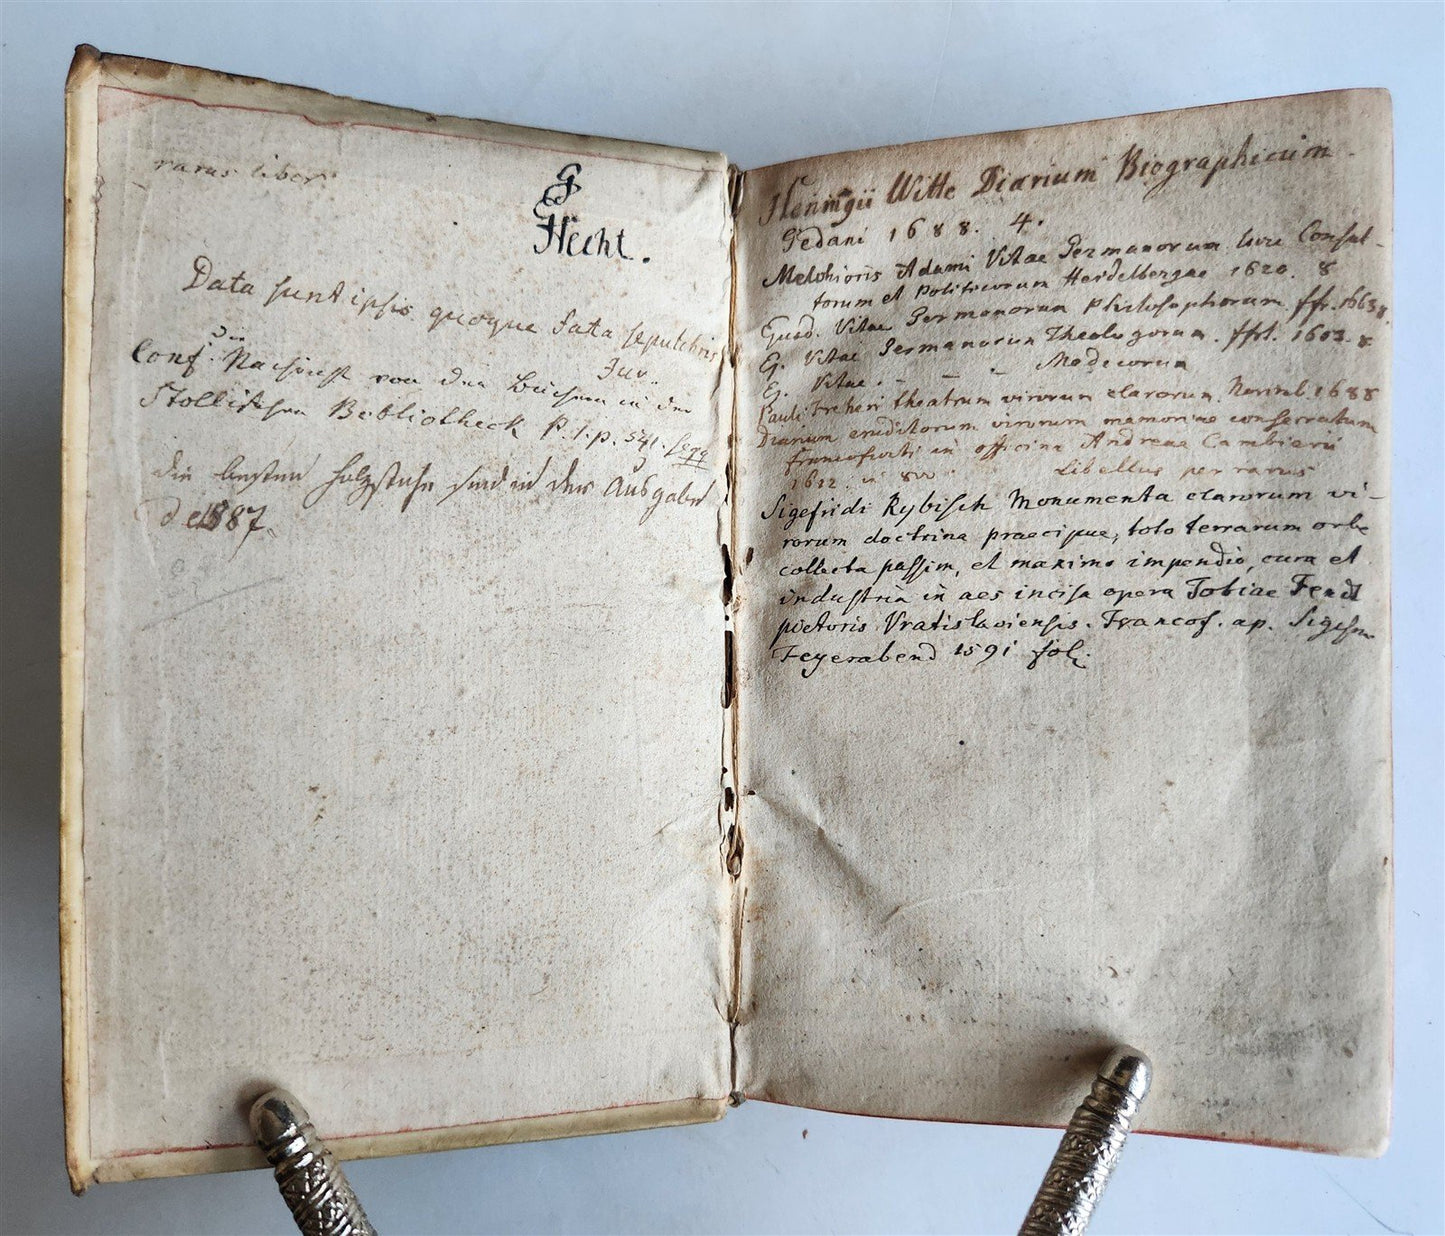 rarus liber
G
Hecht.
Data sunt ipsis quoque fata sepulchris
Juv.
Conf. die Nachricht von den Büchern in der
Stollischen Bibliotheck P. 1. p. 541. seqq
die besten holzstiche sind in der Ausgabe
de 1587.
Henningii Witte Diarium Biographicum
Gedani 1688. 4.
Melchioris Adami Vitae Germanorum Iure Consul-
torum et Politicorum Heidelbergae 1620. 8
Ejusd. Vitae Germanorum Philosophorum ffr. 1663 8.
Ej. Vitae Germanorum Theologorum. ffrt. 1603. 8
Ej. Vitae. - - - Medicorum
Pauli Freheri theatrum virorum clarorum. Norimb. 1688
Diarium eruditorum virorum memoriae consecratum
francofurti in officina Andreae Cambierii
1612. in 8vo Libellus perrarus
Sigefridi Rybisch Monumenta clarorum vi-
rorum doctrina praecipue, toto terrarum orbe
collecta passim, et maximo impendio, cura et
industria in aes incisa opera Tobiae Fendt
pictoris Vratislaviensis. Francof. ap. Sigism
Feyerabend 1591 fol.